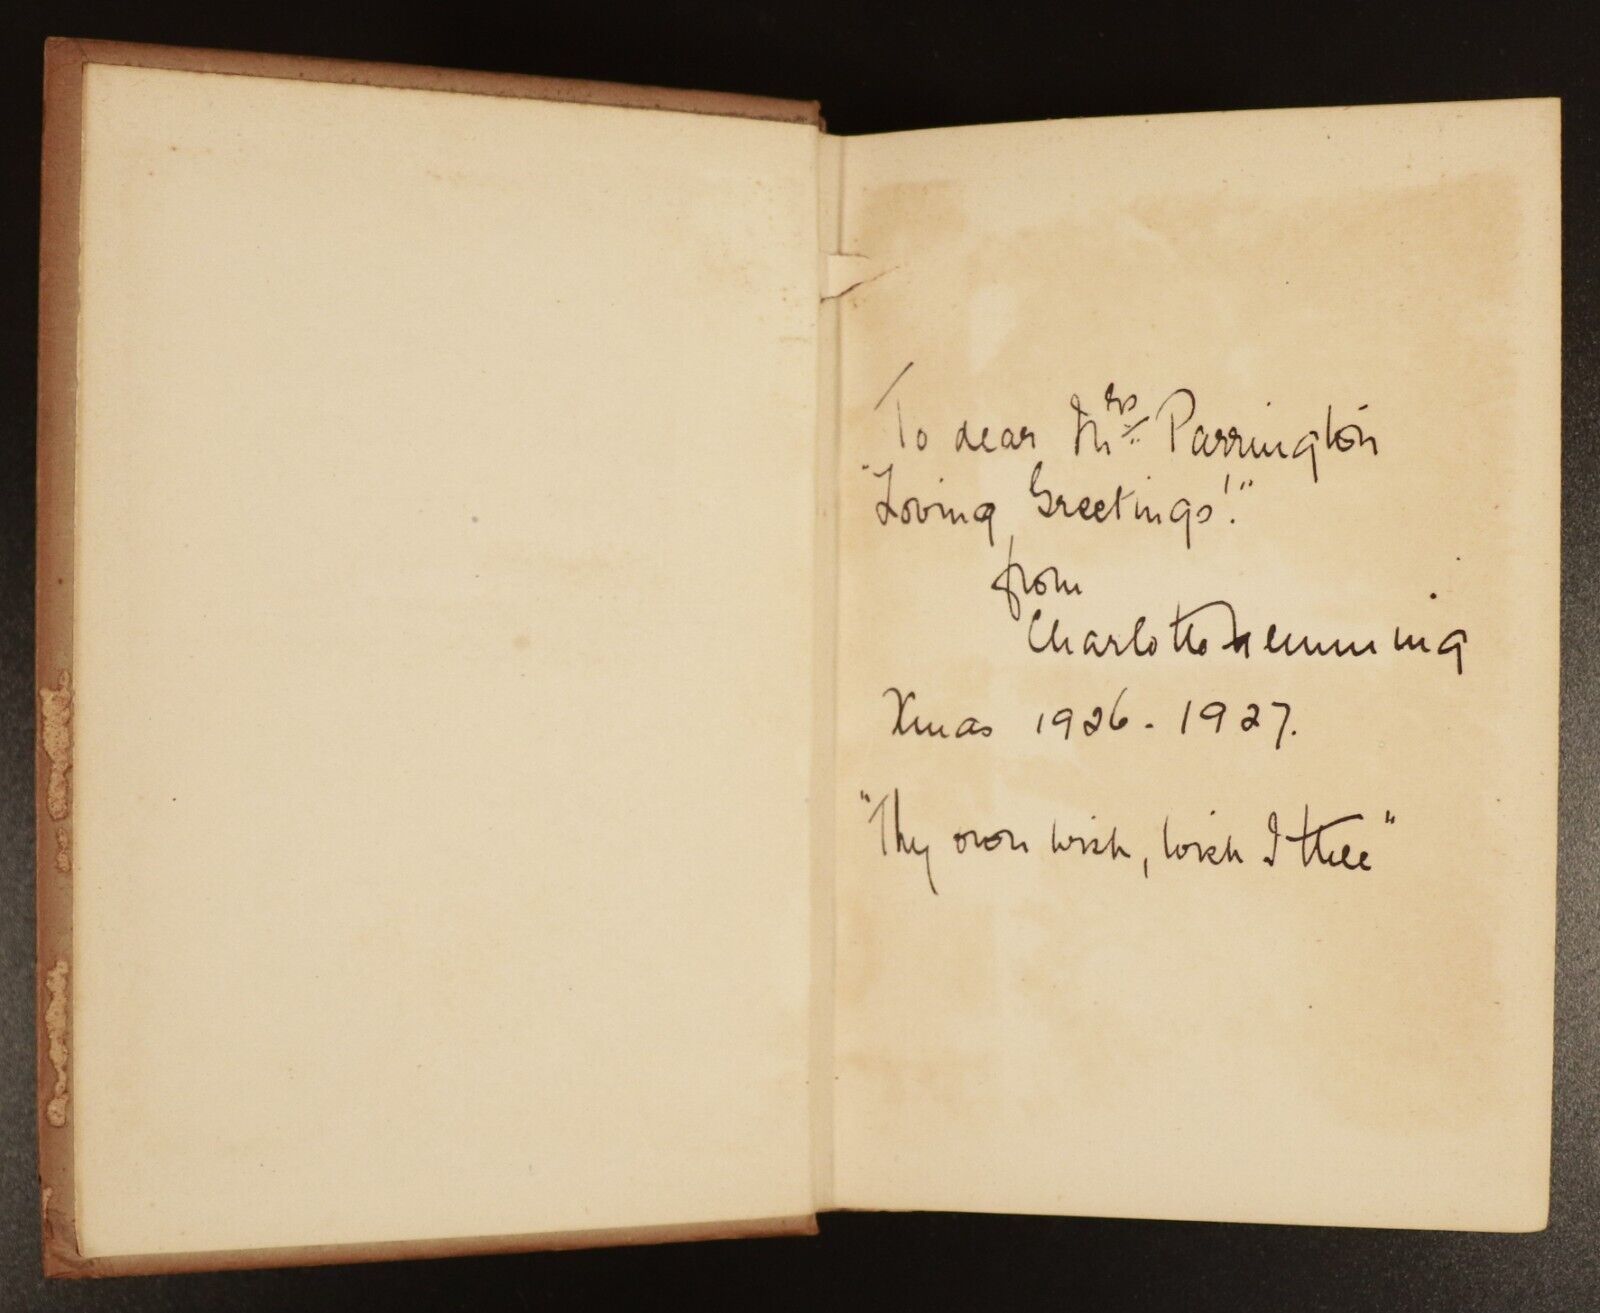 To dear Mrs. Parrington
"Loving Greetings!"
from
Charlotte
Xmas 1926 - 1927.
"Thy own wish, wish I thee"